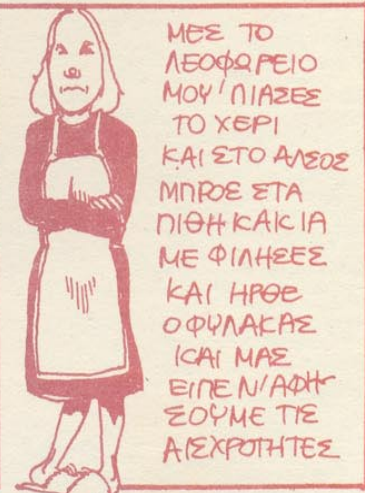 ΜΕΣ ΤΟ
ΛΕΟΦΩΡΕΙΟ
ΜΟΥ 'ΠΙΑΣΕΣ
ΤΟ ΧΕΡΙ
ΚΑΙ ΣΤΟ ΑΛΣΟΣ
ΜΠΡΟΣ ΣΤΑ
ΠΙΘΗΚΑΚΙΑ
ΜΕ ΦΙΛΗΣΕΣ
ΚΑΙ ΗΡΘΕ
Ο ΦΥΛΑΚΑΣ
ΚΑΙ ΜΑΣ
ΕΙΠΕ Ν' ΑΦΗ-
ΣΟΥΜΕ ΤΙΣ
ΑΙΣΧΡΟΤΗΤΕΣ